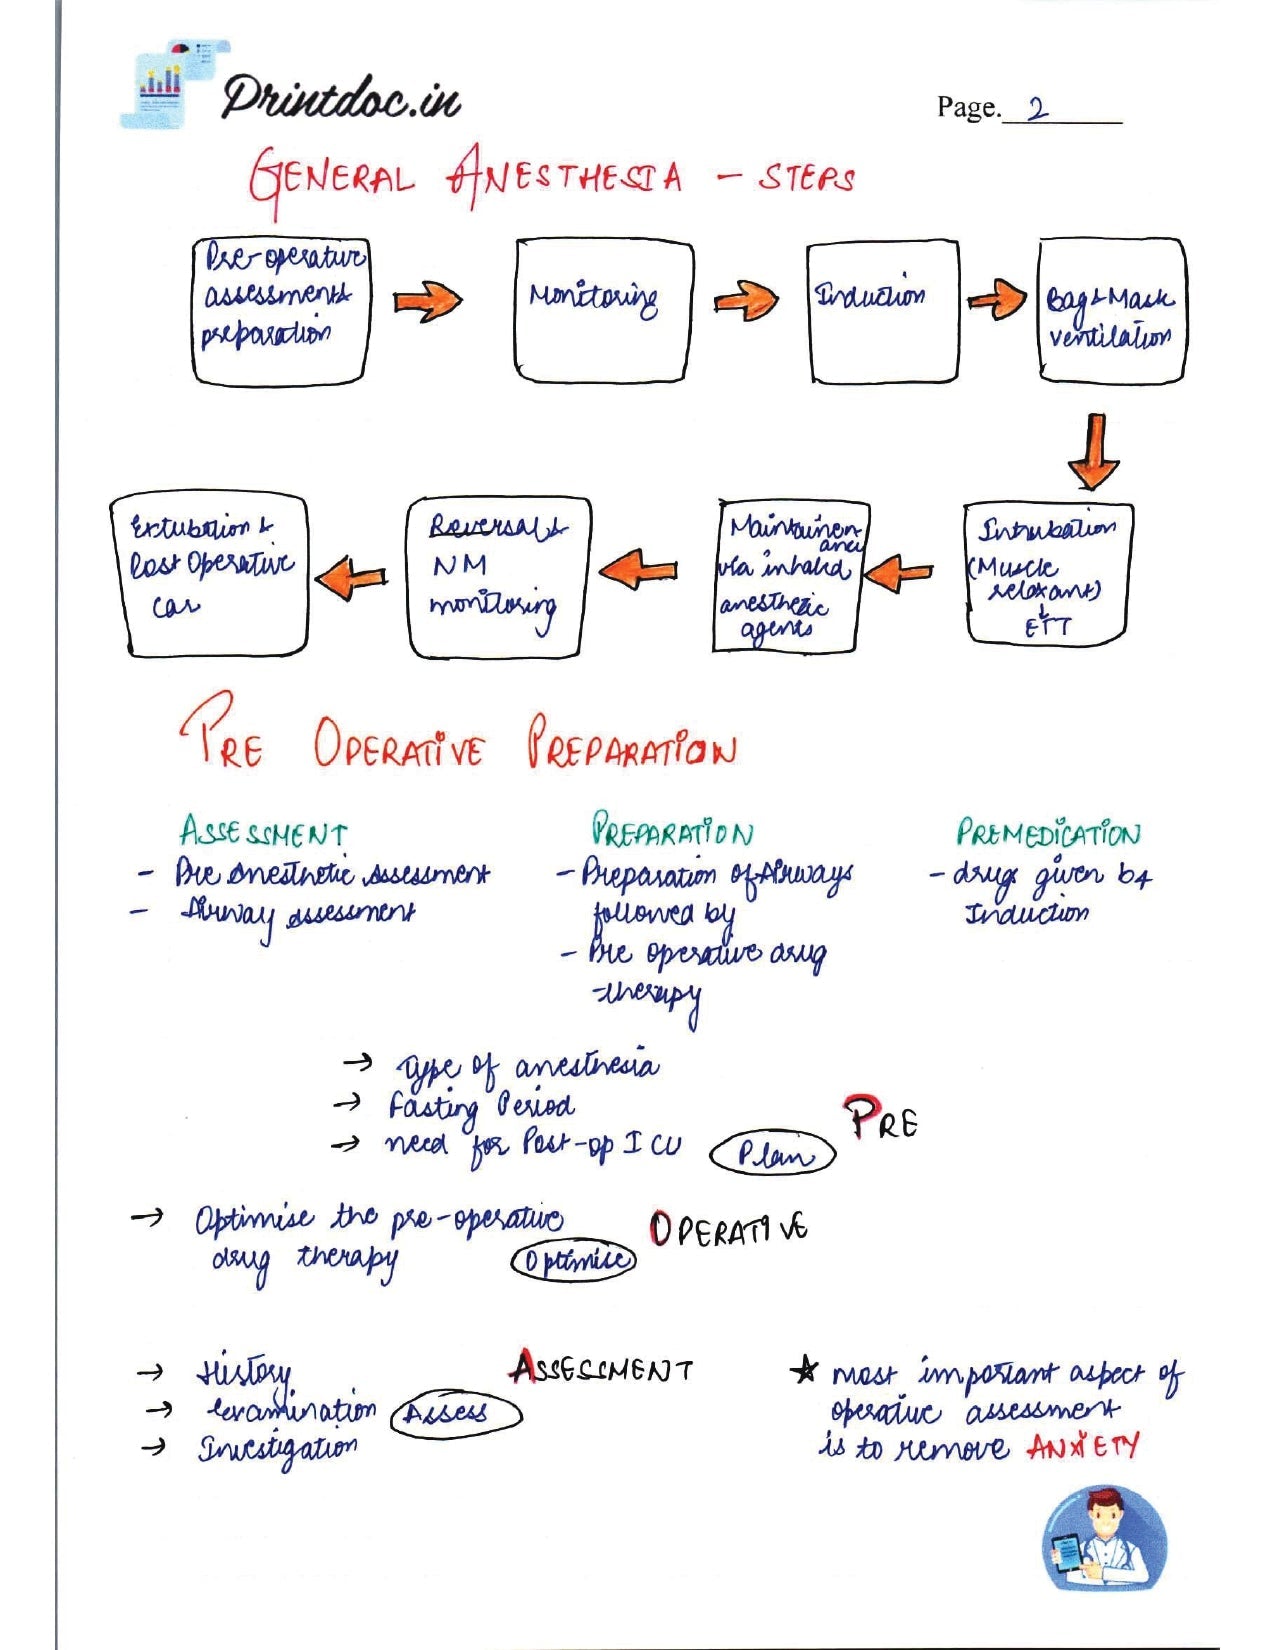 Printdoc.in
Page. 2
GENERAL ANESTHESIA - STEPS
Pre-operative
assessment &
preparation
Monitoring
Induction
Bag & Mask
ventilation
Intubation
(Muscle
relaxant)
↓
ETT
Maintainen
ance
via inhaled
anesthetic
agents
Reversal &
NM
monitoring
Extubation &
Post Operative
car
PRE OPERATIVE PREPARATION
ASSESSMENT
- Pre Anesthetic Assessment
- Airway assessment
PREPARATION
- Preparation of Airways
followed by
- Pre operative drug
therapy
PREMEDICATION
- drugs given b4
Induction
→ Type of anesthesia
→ Fasting Period
→ need for Post-op ICU
Plan
PRE
→ Optimise the pre-operative
drug therapy
Optimise
OPERATIVE
→ History
→ Examination
→ Investigation
Assess
ASSESSMENT
★ most important aspect of
operative assessment
is to remove ANXIETY